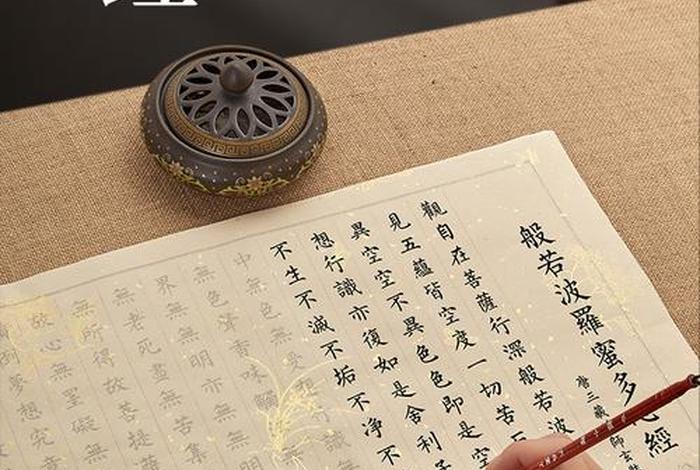 般若波羅蜜多心經
唐三藏 師玄
觀自在菩薩行深般若波
見五蘊皆空度一切苦
異空空不異色色即是
想行識亦復如是舍利子
不生不滅不垢不淨不
中無色無受想 識
無色聲香味觸
界無無明亦無
無老死盡無
無所得故菩提薩
故心無罣礙無
夢想究竟